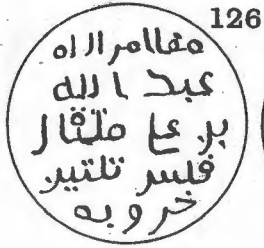 126
مما امر الاه
عبد الله
بن مثقال
فلس ثلثين
خروبه